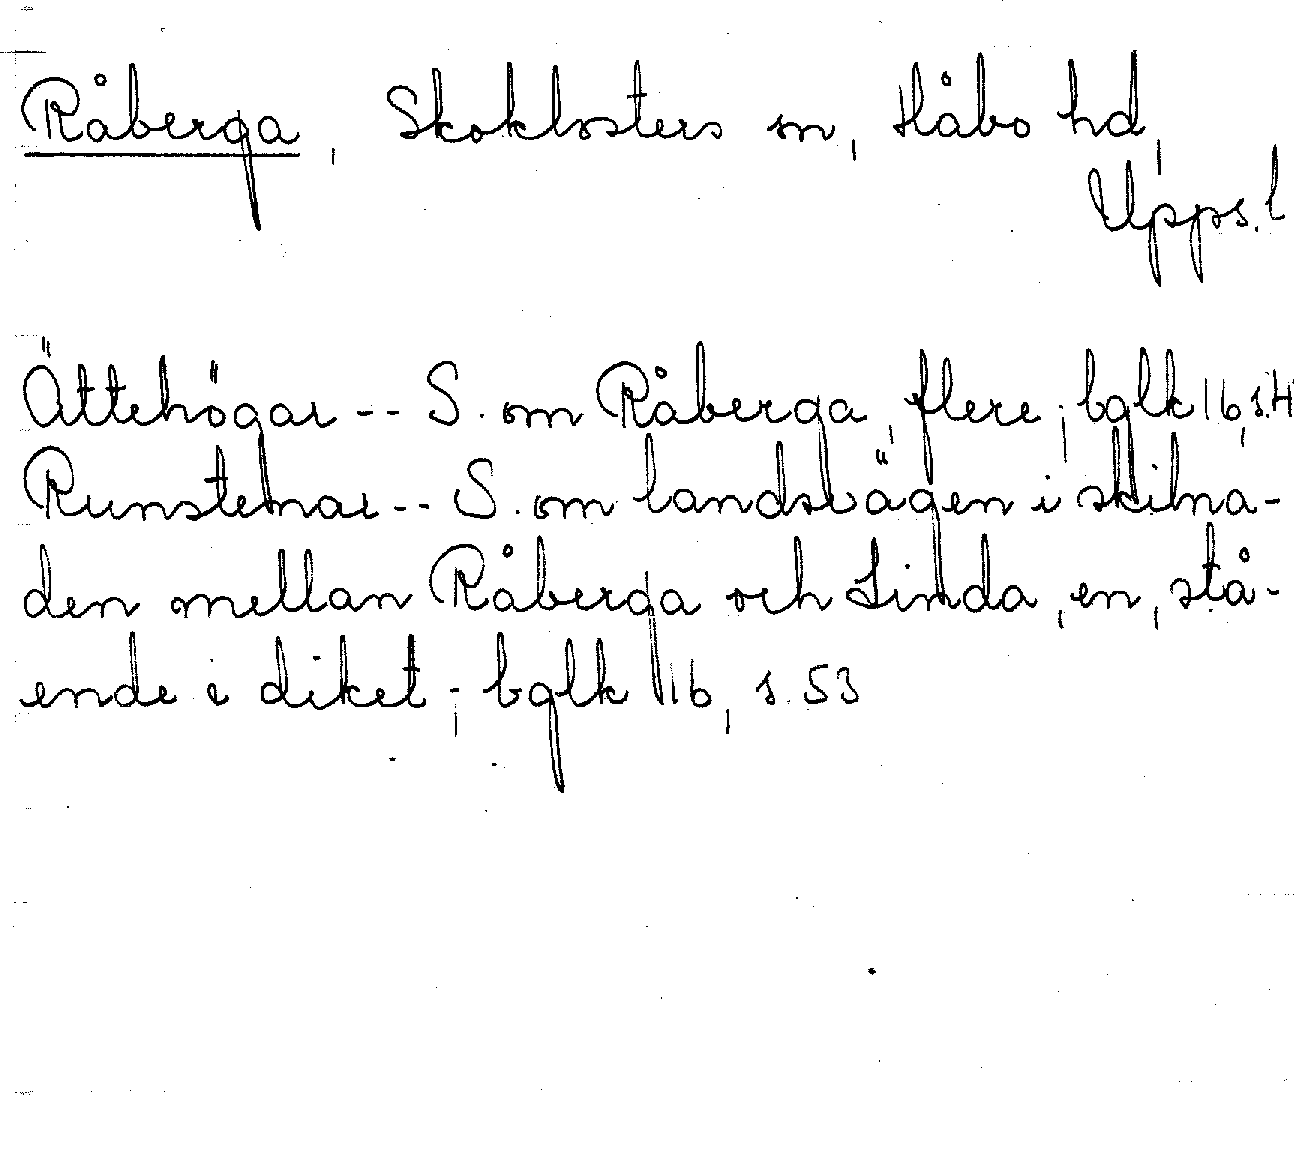 Råberga, Skoklosters sn, Håbo hd,
Upps. l
Ättehögar -- S. om Råberga, flere; bglk 16, s. 4
Runstenar -- S. om landsvägen i skilna-
den mellan Råberga och Linda, en, stå-
ende i diket; bglk 16, s. 53